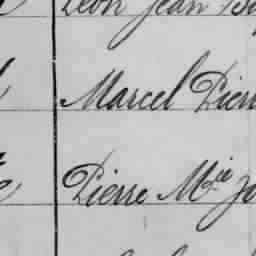 Léon Jean
Marcel Pierr
Pierre Mie Jo